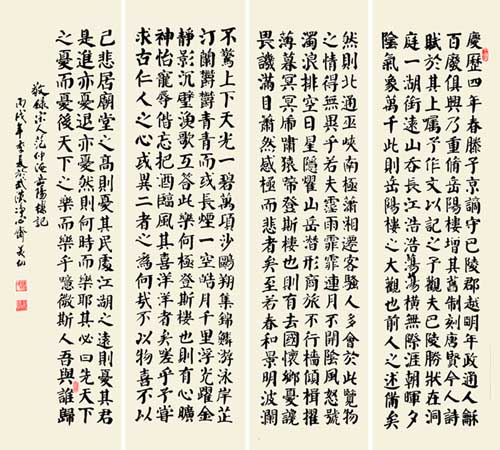 慶歷四年春滕子京謫守巴陵郡越明年政通人龢
百廢俱興乃重脩岳陽樓增其舊制刻唐賢今人詩
賦於其上屬予作文以記之予觀夫巴陵勝狀在洞
庭一湖銜遠山吞長江浩浩蕩蕩橫無際涯朝暉夕
陰氣象萬千此則岳陽樓之大觀也前人之述備矣
然則北通巫峽南極瀟湘遷客騷人多會於此覽物
之情得無異乎若夫霪雨霏霏連月不開陰風怒號
濁浪排空日星隱耀山岳潛形商旅不行檣傾楫摧
薄暮冥冥虎嘯猿啼登斯樓也則有去國懷鄉憂讒
畏譏滿目蕭然感極而悲者矣至若春和景明波瀾
不驚上下天光一碧萬頃沙鷗翔集錦鱗游泳岸芷
汀蘭鬱鬱青青而或長煙一空皓月千里浮光耀金
靜影沉璧漁歌互答此樂何極登斯樓也則有心曠
神怡寵辱偕忘把酒臨風其喜洋洋者矣嗟乎予嘗
求古仁人之心或異二者之為何哉不以物喜不以
己悲居廟堂之高則憂其民處江湖之遠則憂其君
是進亦憂退亦憂然則何時而樂耶其必曰先天下
之憂而憂後天下之樂而樂乎噫微斯人吾與誰歸
敬錄宋人范仲淹岳陽樓記
丙戌年於武漢齋